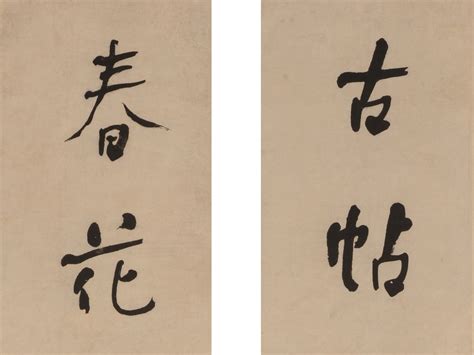 古帖
春花